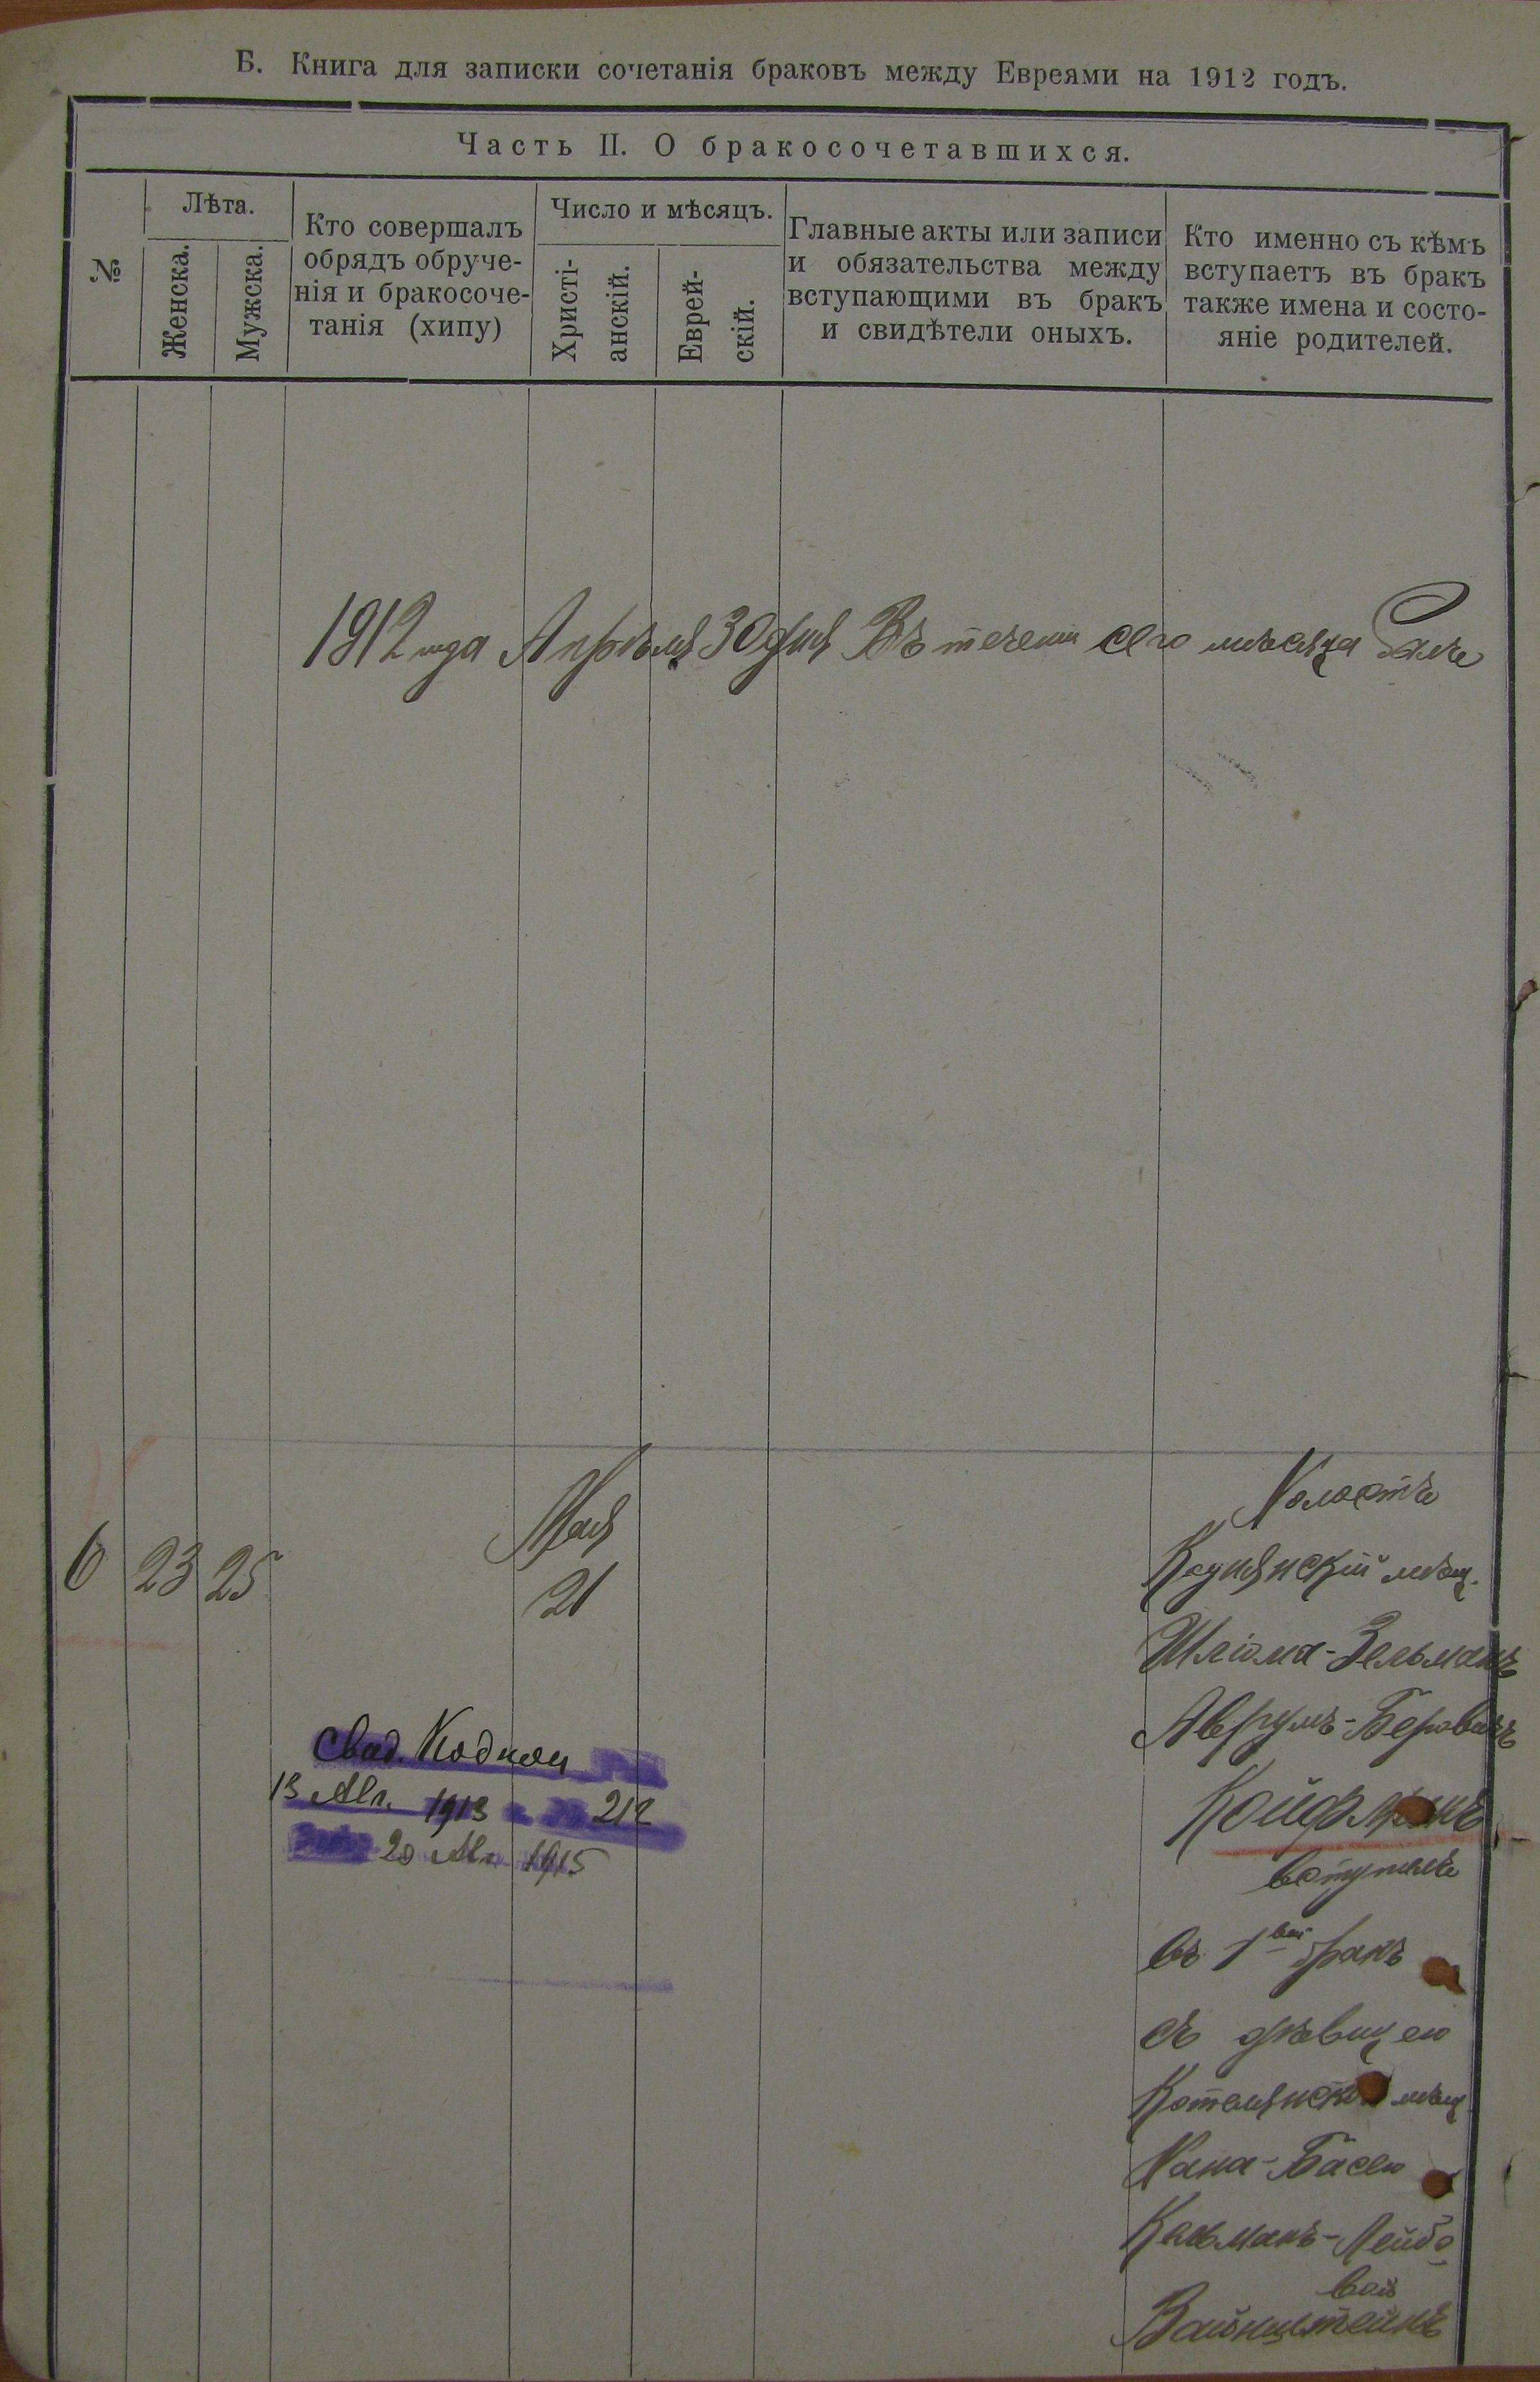 Б. Книга для записки сочетанія браковъ между Евреями на 1912 годъ.
Часть II. О бракосочетавшихся.
№
Лѣта.
Женска.
Мужска.
Кто совершалъ
обрядъ обруче-
нія и бракосоче-
танія (хипу)
Число и мѣсяцъ.
Христі-
анскій.
Еврей-
скій.
Главные акты или записи
и обязательства между
вступающими въ бракъ
и свидѣтели оныхъ.
Кто именно съ кѣмъ
вступаетъ въ бракъ
также имена и состо-
яніе родителей.
1912 года Апрѣля 30 дня Въ течении сего мѣсяца
6 23 25
Мая
21
Холостъ
Кодинскій мѣщ.
Шлiома-Зельманъ
Аврумъ-Беровичъ
Койфманъ
вступилъ
въ 1вый бракъ
съ дѣвицею
мѣщ
Хана-Басею
Кельманъ-Лейбо
вой
Вайнштейнъ
Свид.
13 1913 212
20 1915